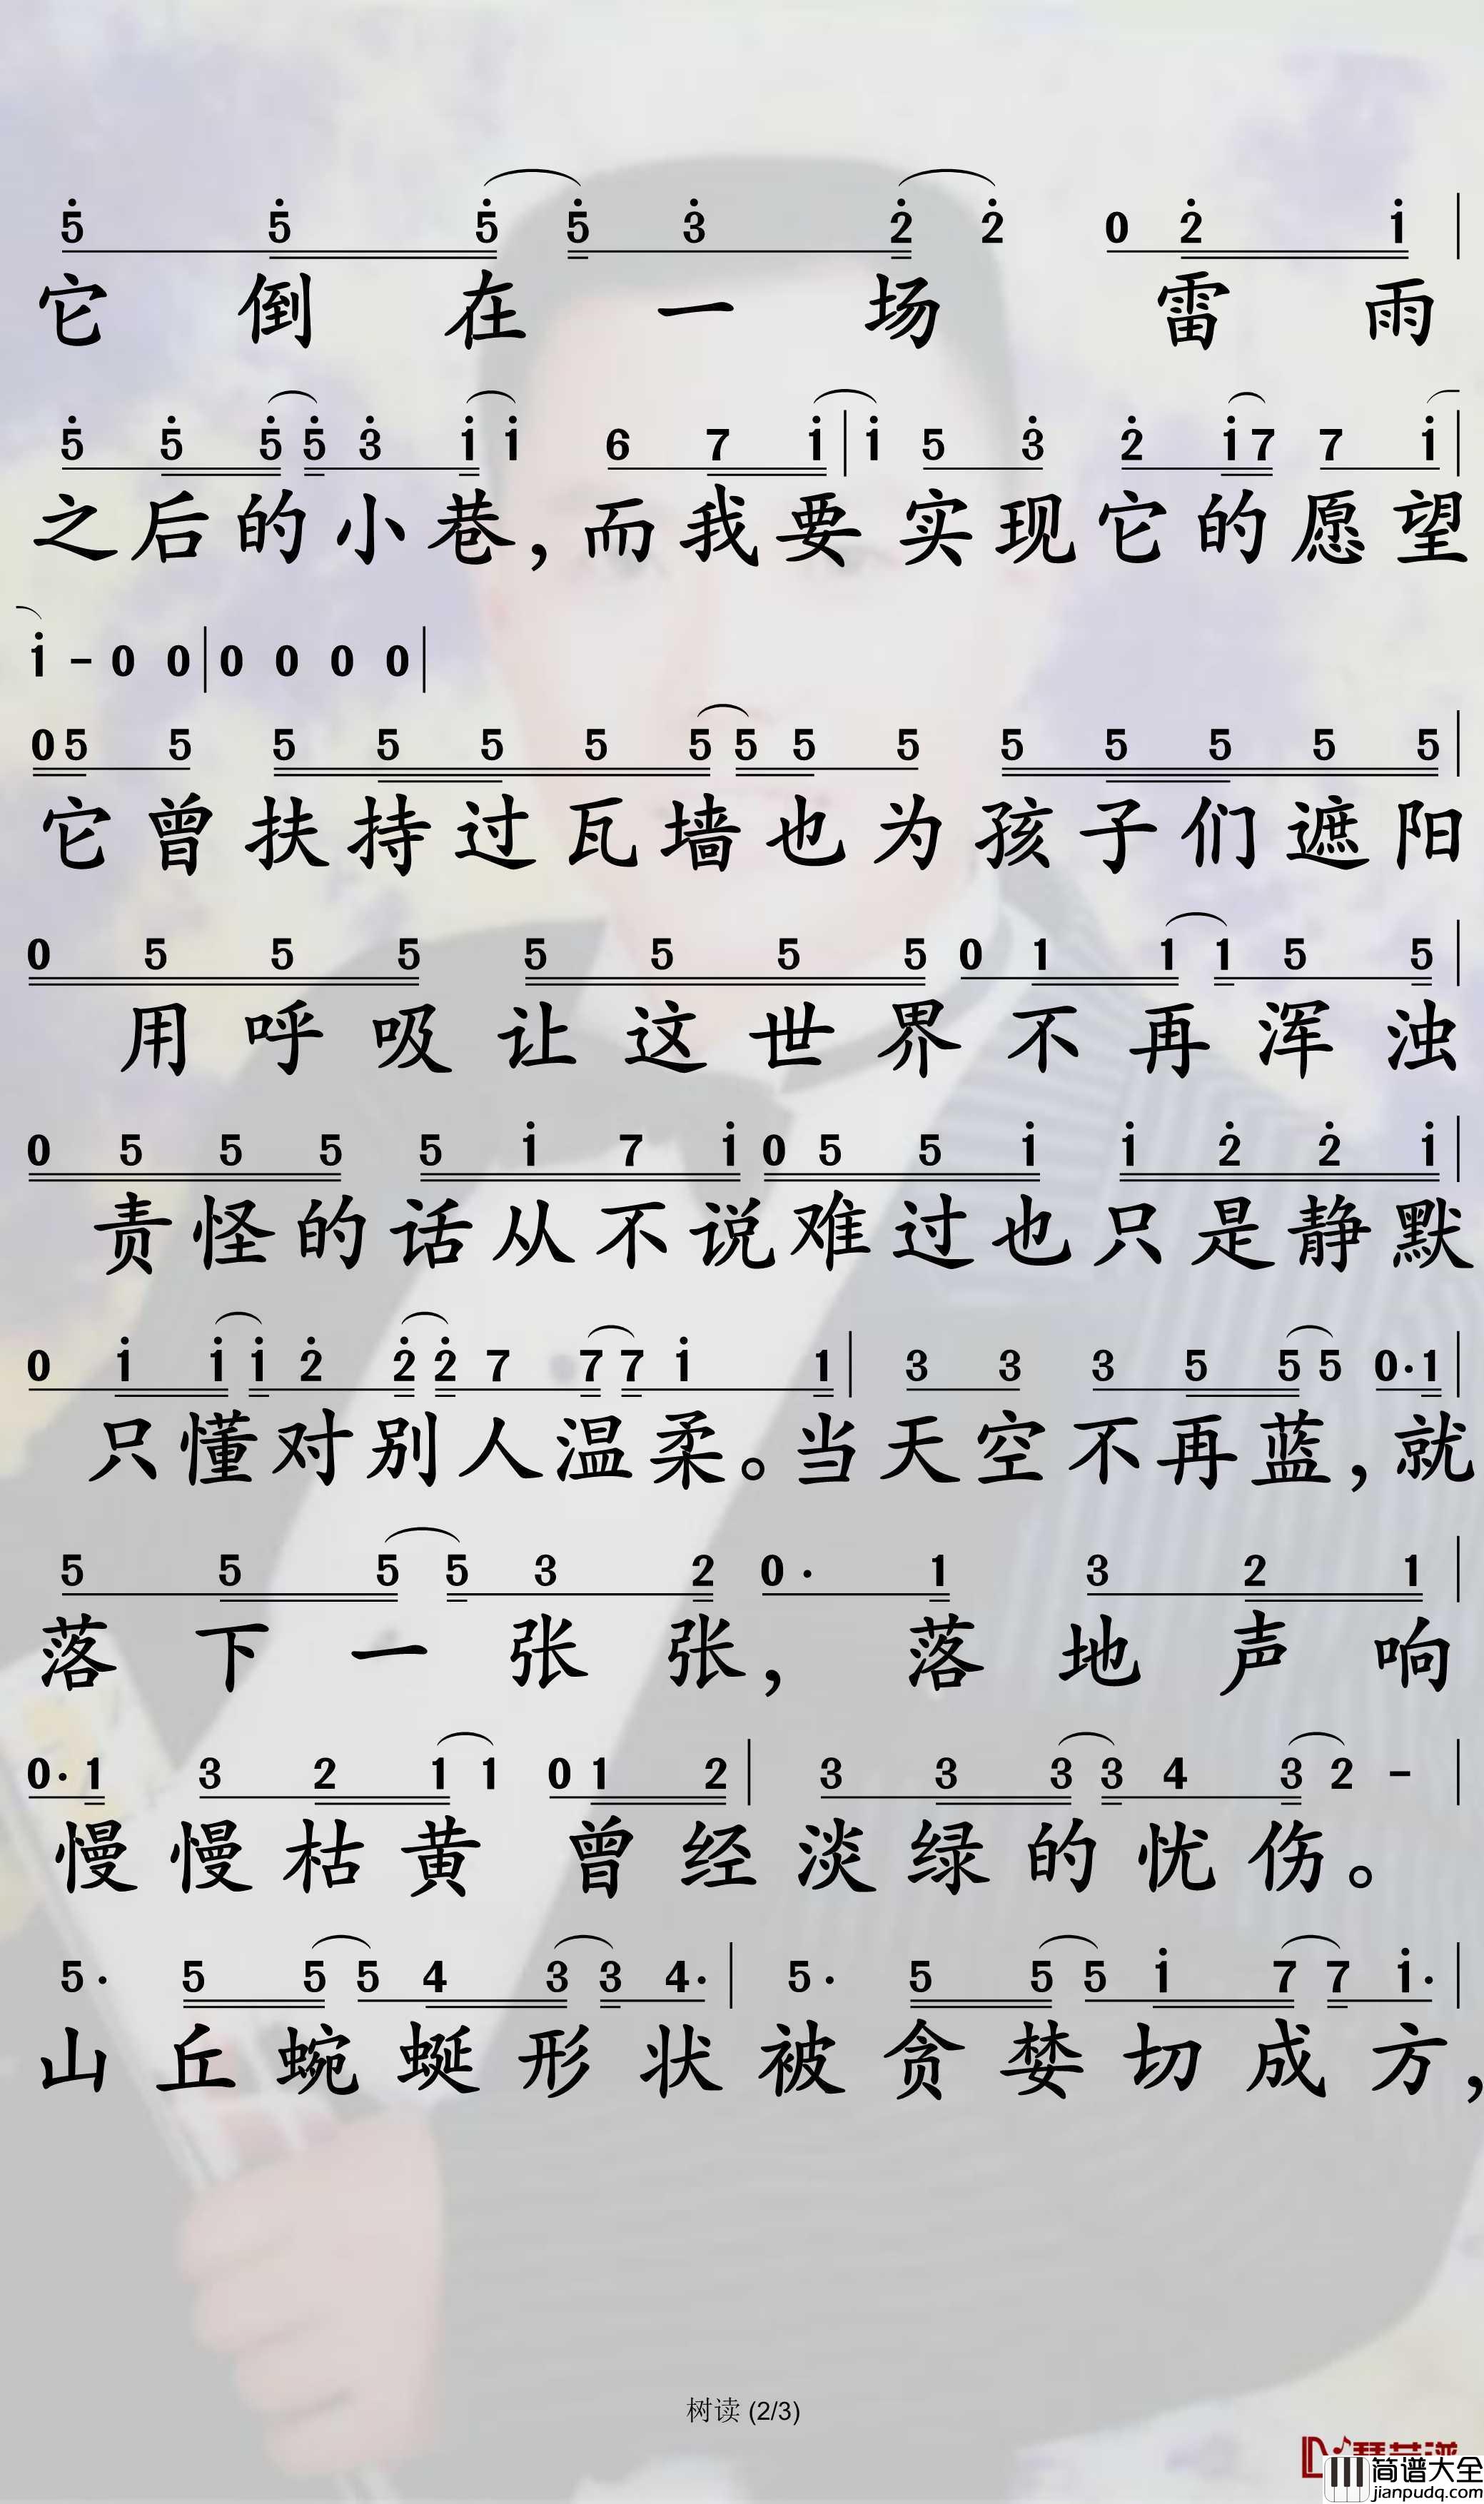 5̇ 5̇ 5̇ 5̇ 3̇ 2̇ 2̇ 0 2̇ 1̇ |
它 倒 在 一 场 雷 雨
5̇ 5̇ 5̇ 5̇ 3̇ 1̇ 1̇ 6 7 1̇ | 1̇ 5 3̇ 2̇ 1̇ 7 7 1̇ |
之后的小巷，而我要实现它的愿望
1̇ - 0 0 | 0 0 0 0 |
0 5 5 5 5 5 5 5 5 5 5 5 5 5 5 5 |
它曾扶持过瓦墙也为孩子们遮阳
0 5 5 5 5 5 5 5 0 1 1 1 5 5 |
用呼吸让这世界不再浑浊
0 5 5 5 5 1̇ 7 1̇ 0 5 5 1̇ 1̇ 2̇ 2̇ 1̇ |
责怪的话从不说难过也只是静默
0 1̇ 1̇ 1̇ 2̇ 2̇ 2̇ 7 7 7 1̇ 1 | 3 3 3 5 5 5 0· 1 |
只懂对别人温柔。当天空不再蓝，就
5 5 5 5 3 2 0· 1 3 2 1 |
落下一张张，落地声响
0· 1 3 2 1 1 0 1 2 | 3 3 3 3 4 3 2 - |
慢慢枯黄 曾经淡绿的忧伤。
5· 5 5 5 4 3 3 4· | 5· 5 5 5 1̇ 7 7 1̇· |
山丘蜿蜒形状被贪婪切成方，
树读 (2/3)
简谱大全
jianpudq.com